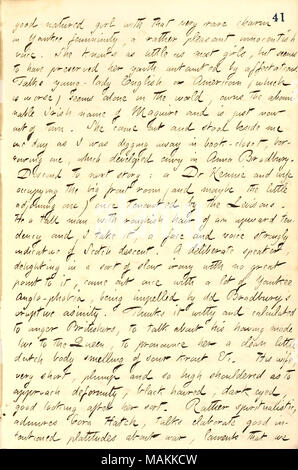 41
good natured girl with that very rare charm
in Yankee femininity, a rather pleasant unnourish
voice. She knows as little as most girls, but seems
to have preserved her youth untainted by affectation.
Talks young-lady English or American, (which
is worse;) seems alone in the world, owns the abomi-
nable Irish name of Maguire and is just now
out of town. She came out and stood beside me
one day as I was digging away in boot-closet,
me, which developed envy in Anna Bradbury.
Descend to next story: a Dr Rennie and wife
occupying the big front room, and maybe the little
adjoining one, once tenanted by the
He a tall man with roughish hair of an upward ten-
dency and, I take it, a face and voice strongly
indicative of Scotch descent. A deliberate speaker
delighting in a sort of slow irony with no great
point to it, came out once with a lot of Yankee
Anglo-phobia, being impelled by old Bradbury's
eruptive asinity. Thinks it witty and calculated
to anger Britishers, to talk about his having made
love to the Queen, to pronounce her a clean little
dutch body smelling of sour krout &c. His wife
very short, plump and so high shouldered as to
approach deformity, black haired, dark eyed
good looking after her sort. Rather spiritualistic,
admires Cora Hatch, talks elaborate good in-
tentioned platitudes about war, laments that we
alamy
Image ID: MAKKCW
www.alamy.com